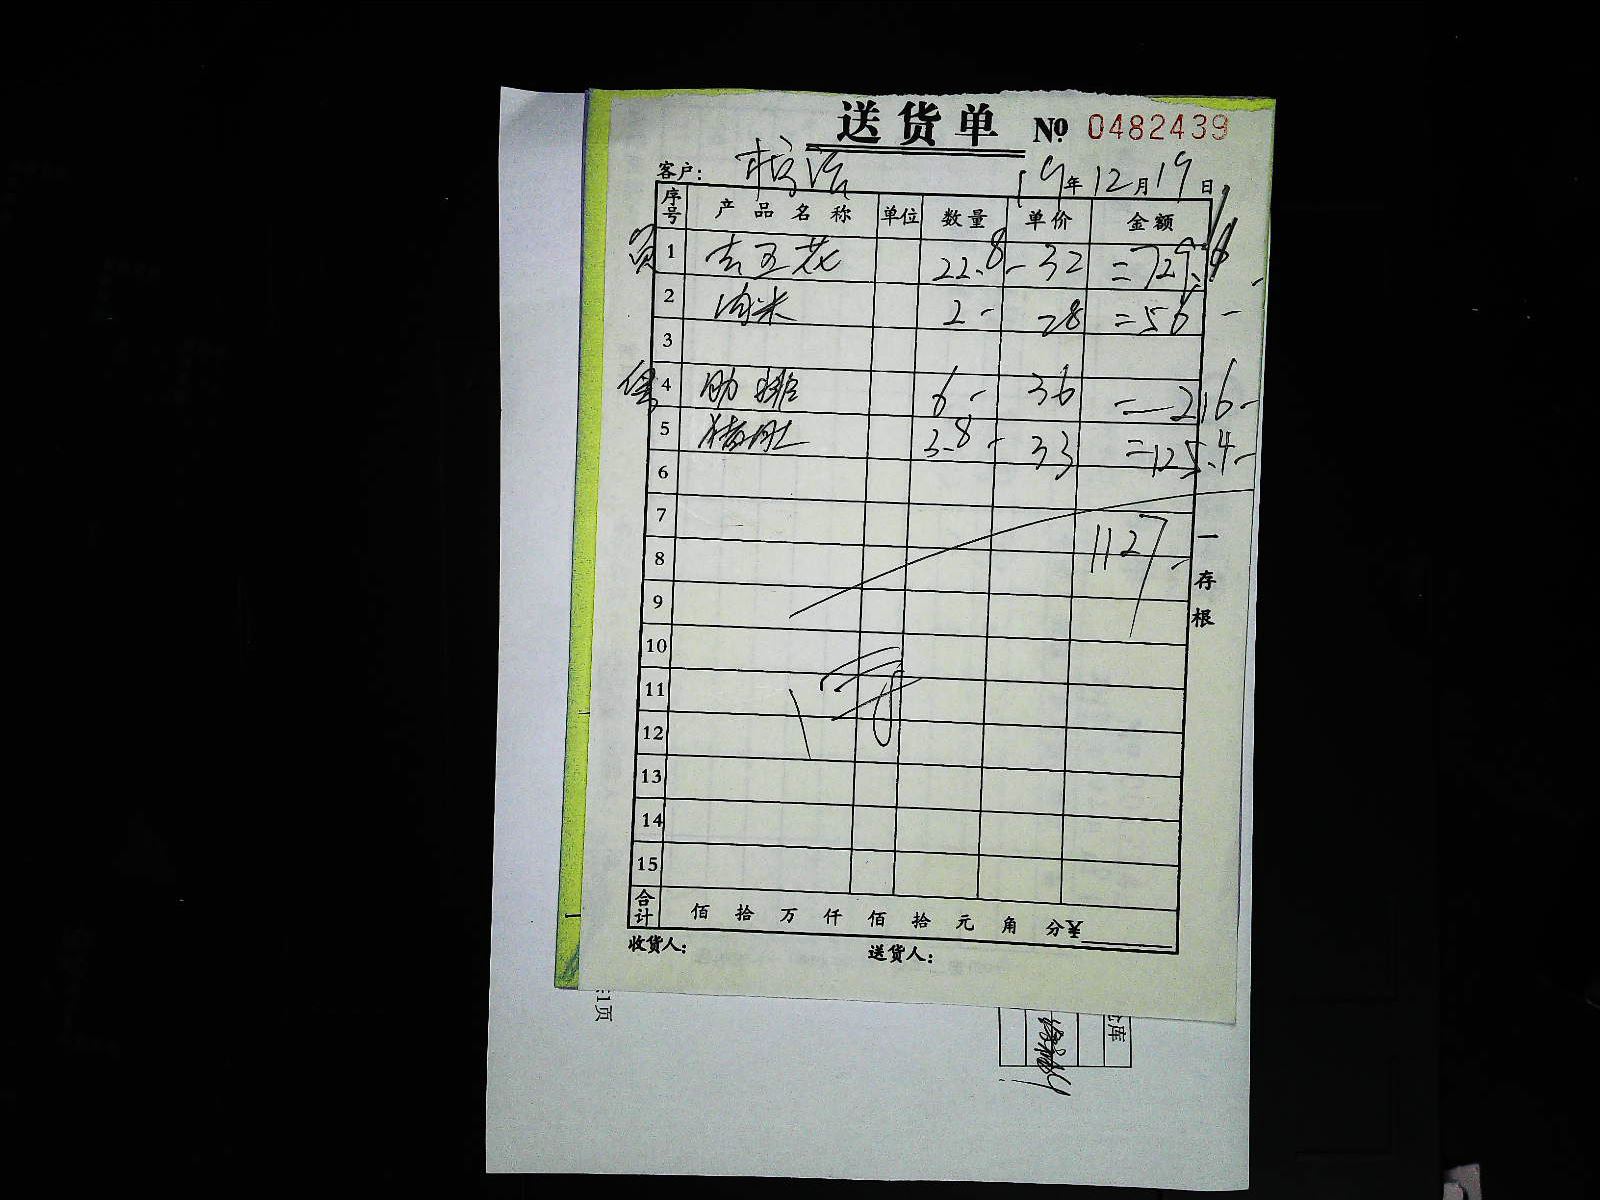 送货单 № 0482439
客户： 19年12月19日
序号 产品名称 单位 数量 单价 金额
员 1 去五花 22.8- 32 =729.6
2 肉米 2- 28 =56-
3
4 肋排 6- 36 =216-
5 猪肚 3.8- 33 =125.4-
6
7 1127-
8
9
10
11
12
13
14
15
合计 佰 拾 万 仟 佰 拾 元 角 分¥
收货人： 送货人：
一存根
1页
库